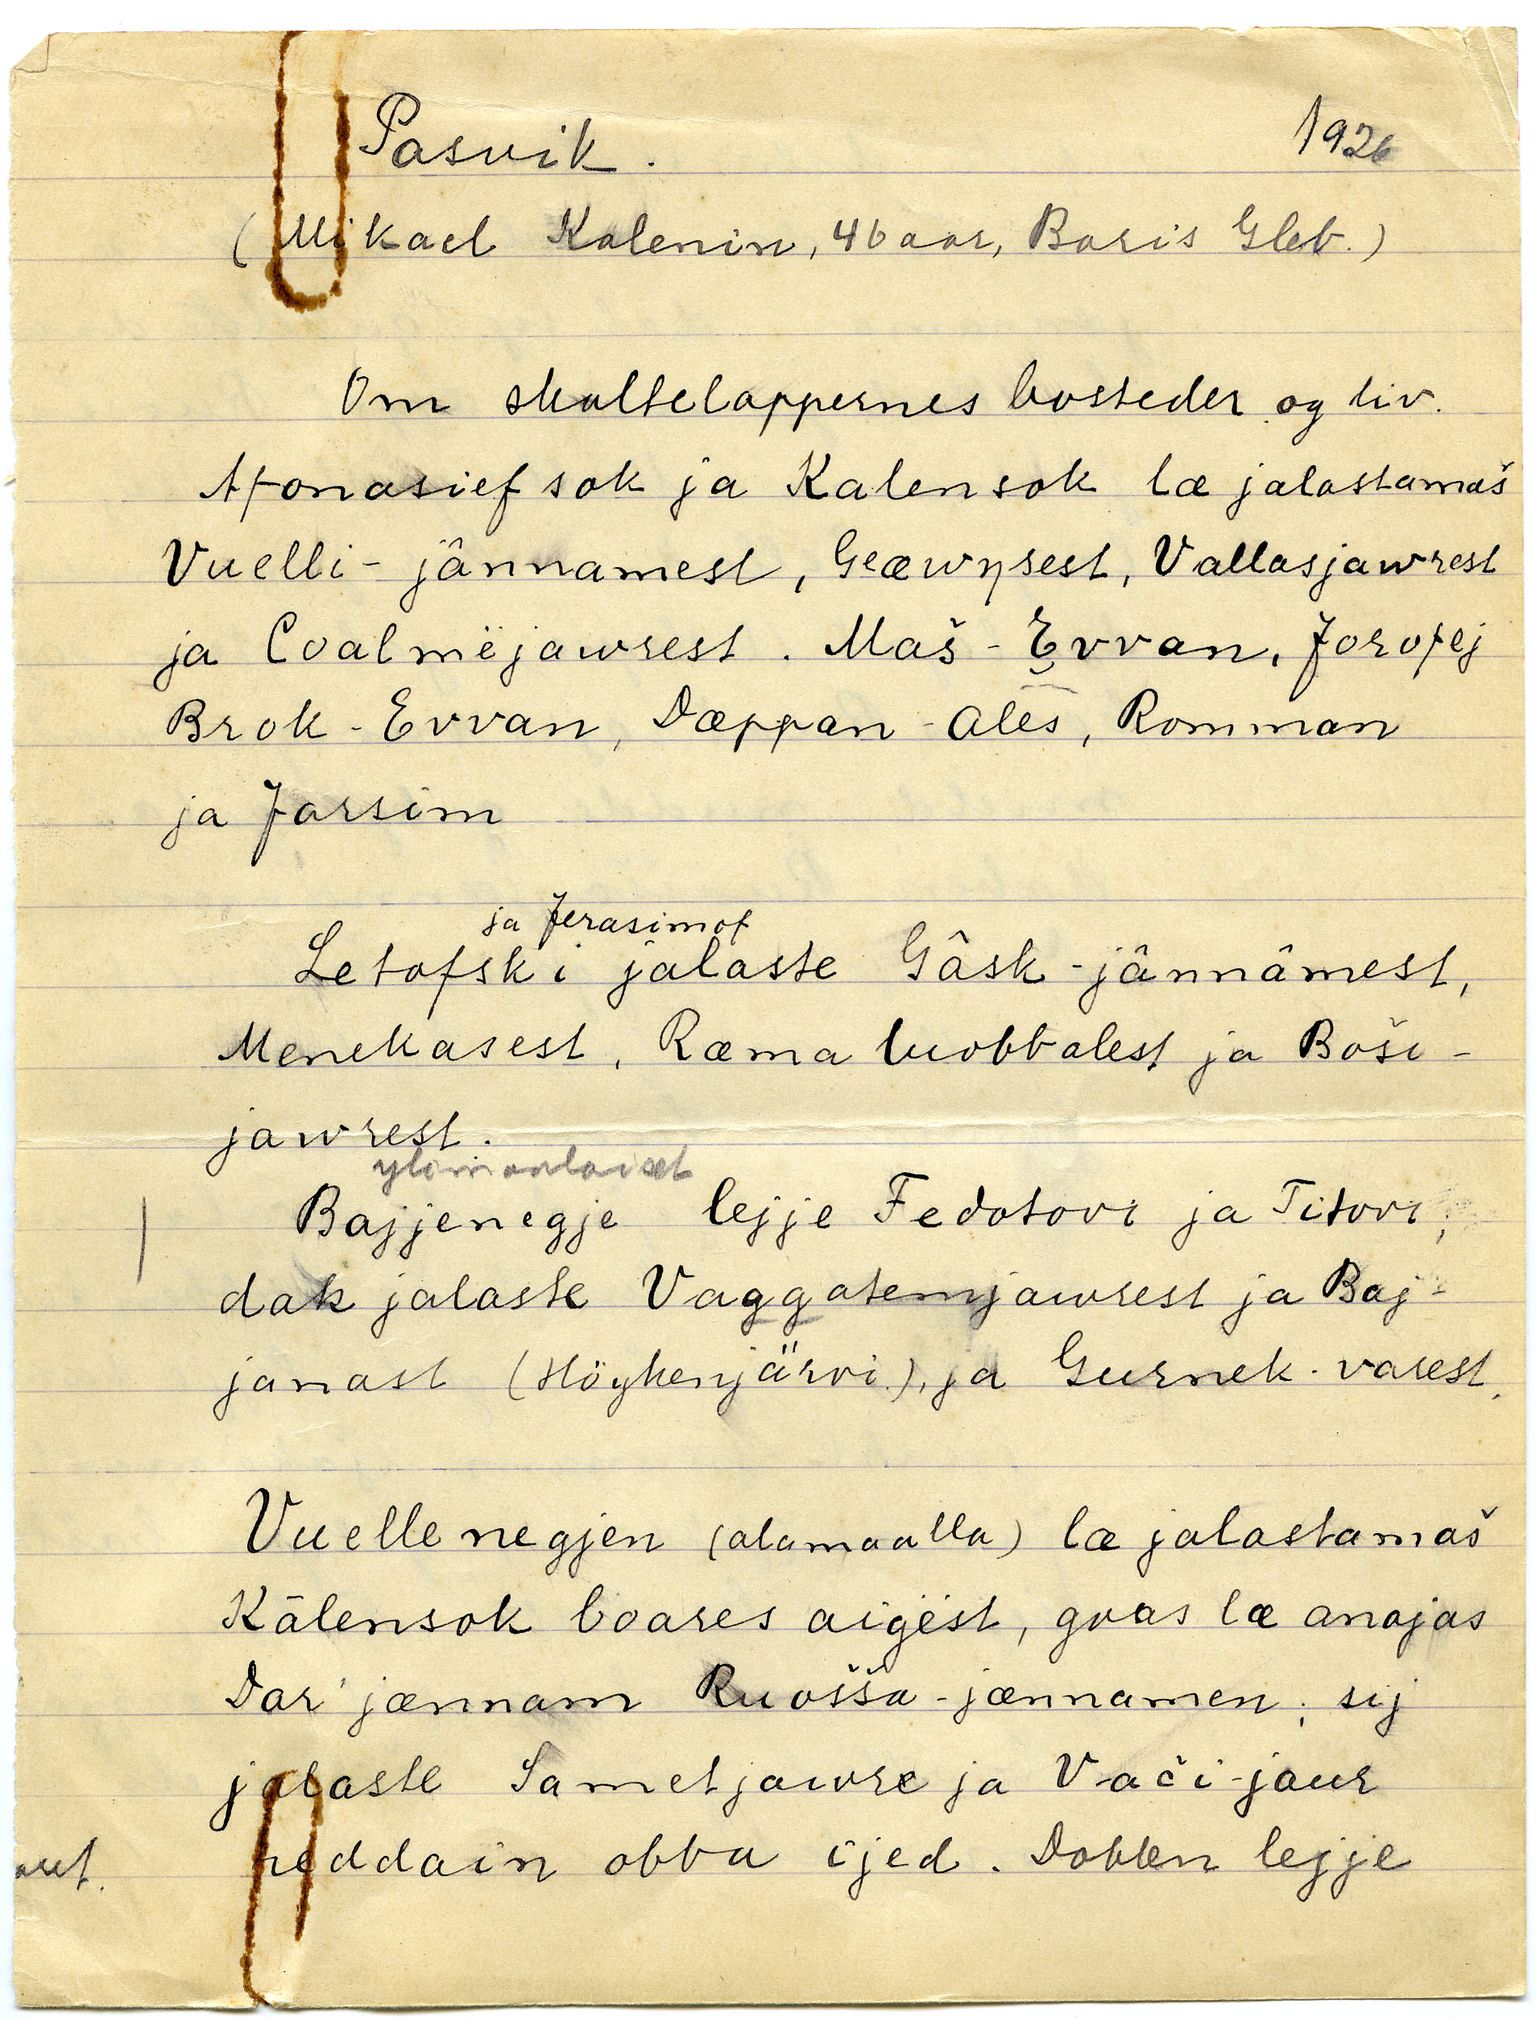 Pasvik. 1926
(Mikael Kalenin, 46 aar, Boris Gleb.)
Om skoltelappernes bosteder og liv.
Afonasiefsok ja Kalensok læ jalastamaš
Vuelli-jânnamest, Geæwŋsest, Vallasjawrest
ja Coalmëjawrest. Maš-Evvan, Jorofej
Brok-Evvan, Dæppan-Ales, Romman
ja Jarsim
ja Jerasimof
Letofski jalaste Gâsk-jânnâmest,
Menekasest, Ræma luobbalest ja Boši-
jawrest.
ylimaalaiset
Bajjenegje lejje Fedotovi ja Titovi,
dak jalaste Vaggatemjawrest ja Baj-
janast (Höyhenjärvi), ja Gurnek-varest.
Vuellenegjen (alamaalla) læ jalastamaš
Kālensok boares aigëst, goas læ anajas
Dar'jænnam Ruošša-jænnamen; sij
jalaste Sametjawre ja Vači-jaur
reddain obba ijed. Dobben lejje